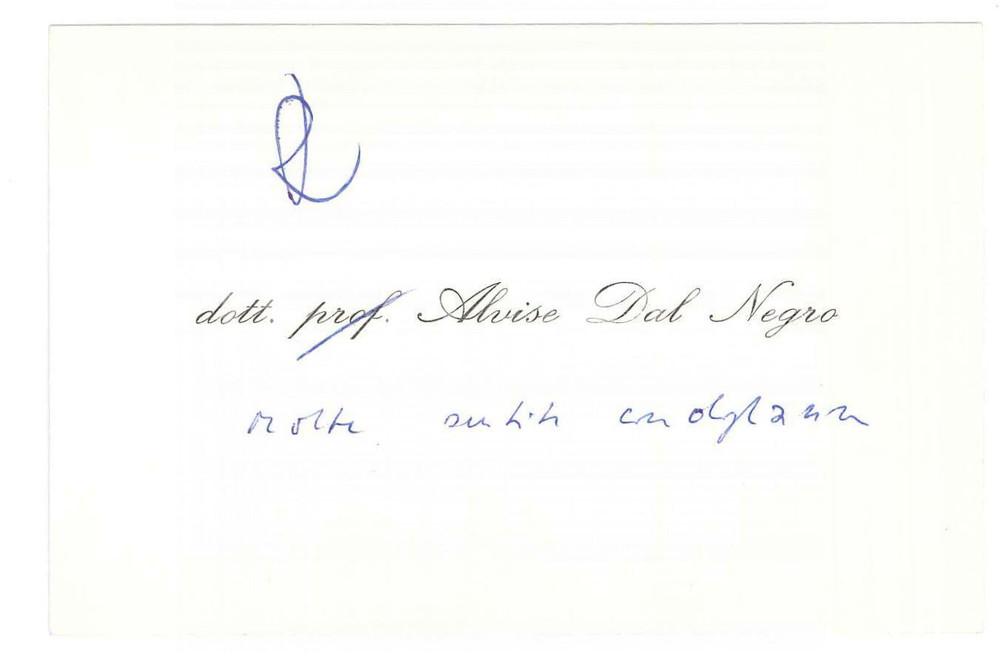 dott. prof. Alvise Dal Negro
molte sentite condoglianze